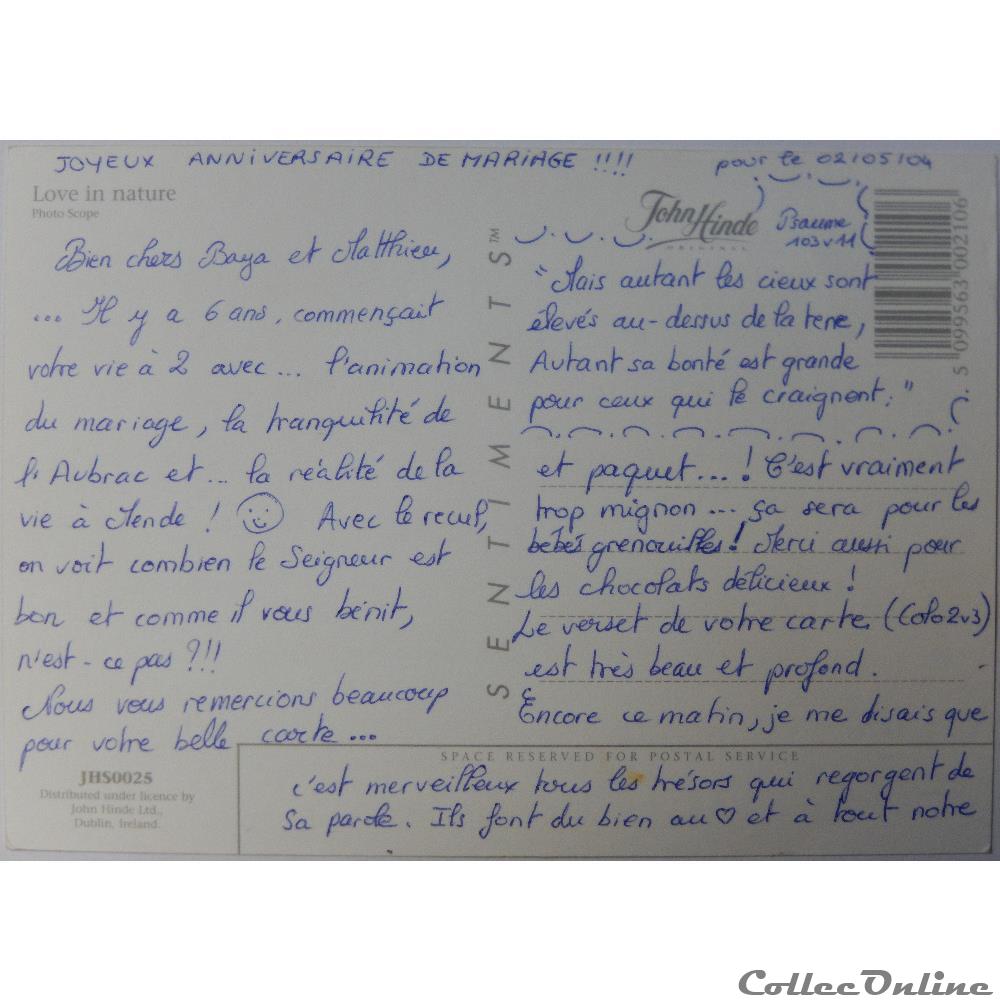 JOYEUX ANNIVERSAIRE DE MARIAGE !!!! pour le 02/05/04
Love in nature
Photo Scope
John Hinde
ORIGINAL
Psaume
103 v 11
5 099563 002106
SENTIMENTS™
Bien chers Baya et Matthieu,
... Il y a 6 ans, commençait
votre vie à 2 avec... l'animation
du mariage, la tranquilité de
l'Aubrac et... la réalité de la
vie à Mende ! Avec le recul,
on voit combien le Seigneur est
bon et comme il vous bénit,
n'est-ce pas ?!!
Nous vous remercions beaucoup
pour votre belle carte...
"Mais autant les cieux sont
élevés au-dessus de la terre,
Autant sa bonté est grande
pour ceux qui le craignent."
et paquet...! C'est vraiment
trop mignon... ça sera pour les
bébés grenouilles! Merci aussi pour
les chocolats délicieux !
Le verset de votre carte (Colo 2v3)
est très beau et profond.
Encore ce matin, je me disais que
SPACE RESERVED FOR POSTAL SERVICE
c'est merveilleux tous les trésors qui regorgent de
Sa parole. Ils font du bien au ♡ et à tout notre
JHS0025
Distributed under licence by
John Hinde Ltd.,
Dublin, Ireland.
CollecOnline